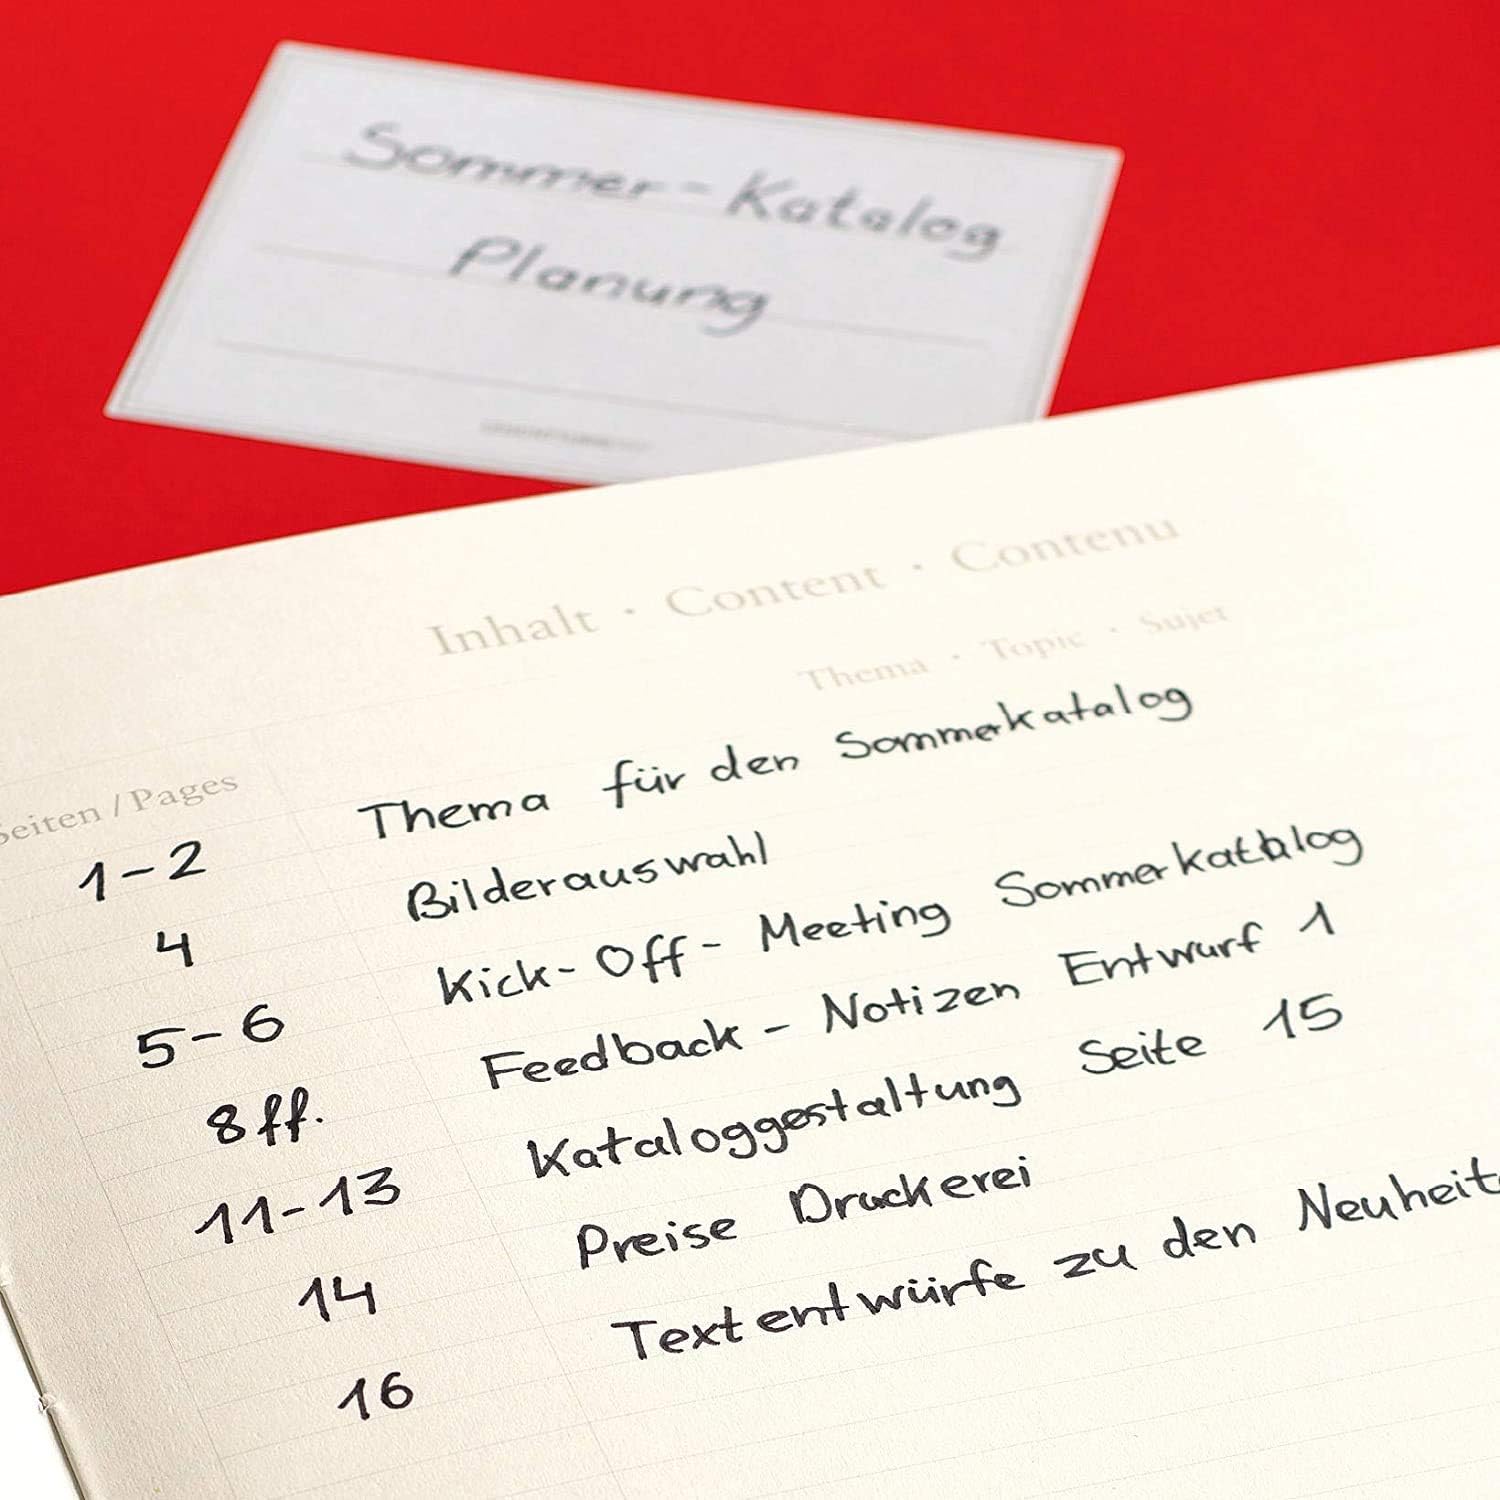 Sommer-Katalog
Planung
Inhalt · Content · Contenu
Thema · Topic · Sujet
Seiten / Pages
1-2 Thema für den Sommerkatalog
4 Bilderauswahl
5-6 Kick-Off-Meeting Sommerkatalog
8ff. Feedback - Notizen Entwurf 1
11-13 Kataloggestaltung Seite 15
14 Preise Druckerei
16 Textentwürfe zu den